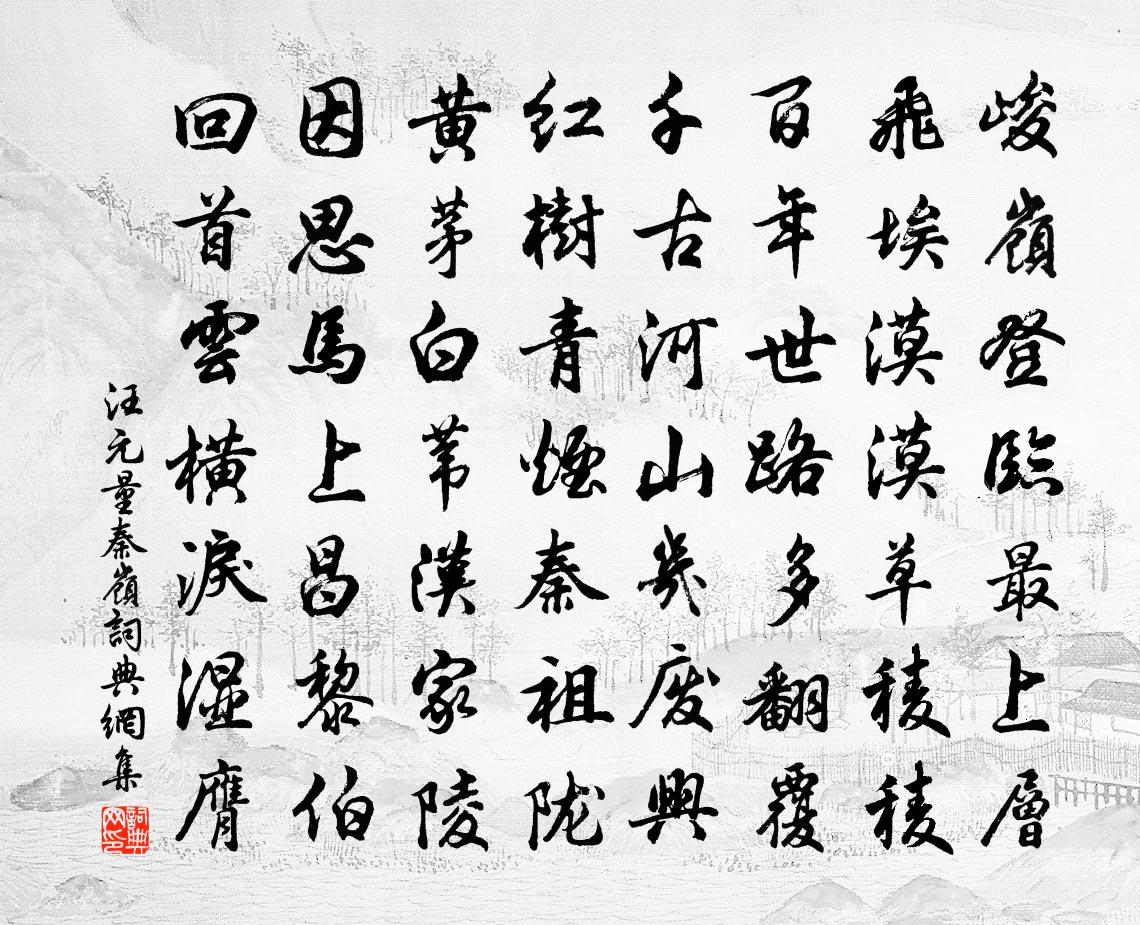 峻嶺登臨最上層
飛埃漠漠草稜稜
百年世路多翻覆
千古河山幾廢興
紅樹青煙秦祖陇
黃茅白葦漢家陵
因思馬上昌黎伯
回首雲橫淚湿膺
汪元量秦嶺詞典網集
詞典网印